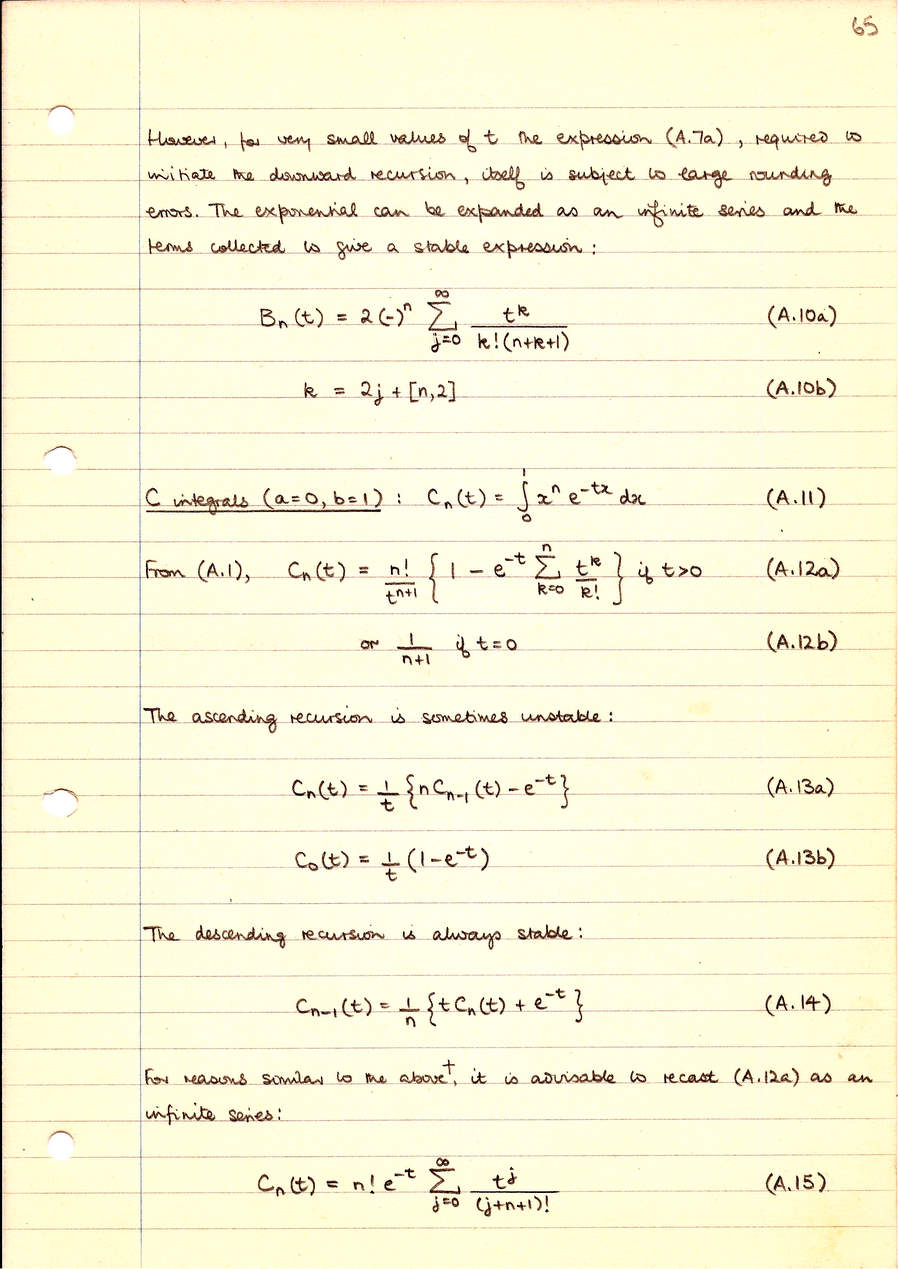 65
However, for very small values of t the expression (A.7a), required to
initiate the downward recursion, itself is subject to large rounding
errors. The exponential can be expanded as an infinite series and the
terms collected to give a stable expression:
Bₙ(t) = 2(-)ⁿ ∑_{j=0}^{∞} t^k / k!(n+k+1) (A.10a)
k = 2j + [n,2] (A.10b)
C integrals (a=0, b=1): Cₙ(t) = ∫₀¹ xⁿ e^{-tx} dx (A.11)
From (A.1), Cₙ(t) = n!/t^{n+1} { 1 - e^{-t} ∑_{k=0}^{n} t^k/k! } if t>0 (A.12a)
or 1/(n+1) if t=0 (A.12b)
The ascending recursion is sometimes unstable:
Cₙ(t) = 1/t {n C_{n-1}(t) - e^{-t}} (A.13a)
C₀(t) = 1/t (1-e^{-t}) (A.13b)
The descending recursion is always stable:
C_{n-1}(t) = 1/n {t Cₙ(t) + e^{-t}} (A.14)
For reasons similar to the above†, it is advisable to recast (A.12a) as an
infinite series:
Cₙ(t) = n! e^{-t} ∑_{j=0}^{∞} t^j / (j+n+1)! (A.15)